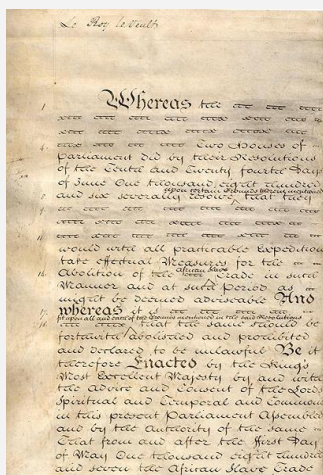 Le Roy le veult
Whereas the
Two Houses of
Parliament did by their Resolutions
of the Tenth and Twenty fourth Days
of June One thousand eight hundred
upon certain Grounds therein mentioned
and six severally resolve, that they
would with all practicable Expedition
take effectual Measures for the
Abolition of the African Slave Trade in such
Manner and at such Period as
might be deemed adviseable And
whereas it
fit upon all and each of the Grounds mentioned in the said Resolutions
that the same should be
forthwith abolished and prohibited
and declared to be unlawful Be it
therefore Enacted by the King's
Most Excellent Majesty by and with
the Advice and Consent of the Lords
Spiritual and Temporal and Commons
in this present Parliament Assembled
and by the Authority of the same
That from and after the first Day
of May One thousand eight hundred
and seven the African Slave Trade